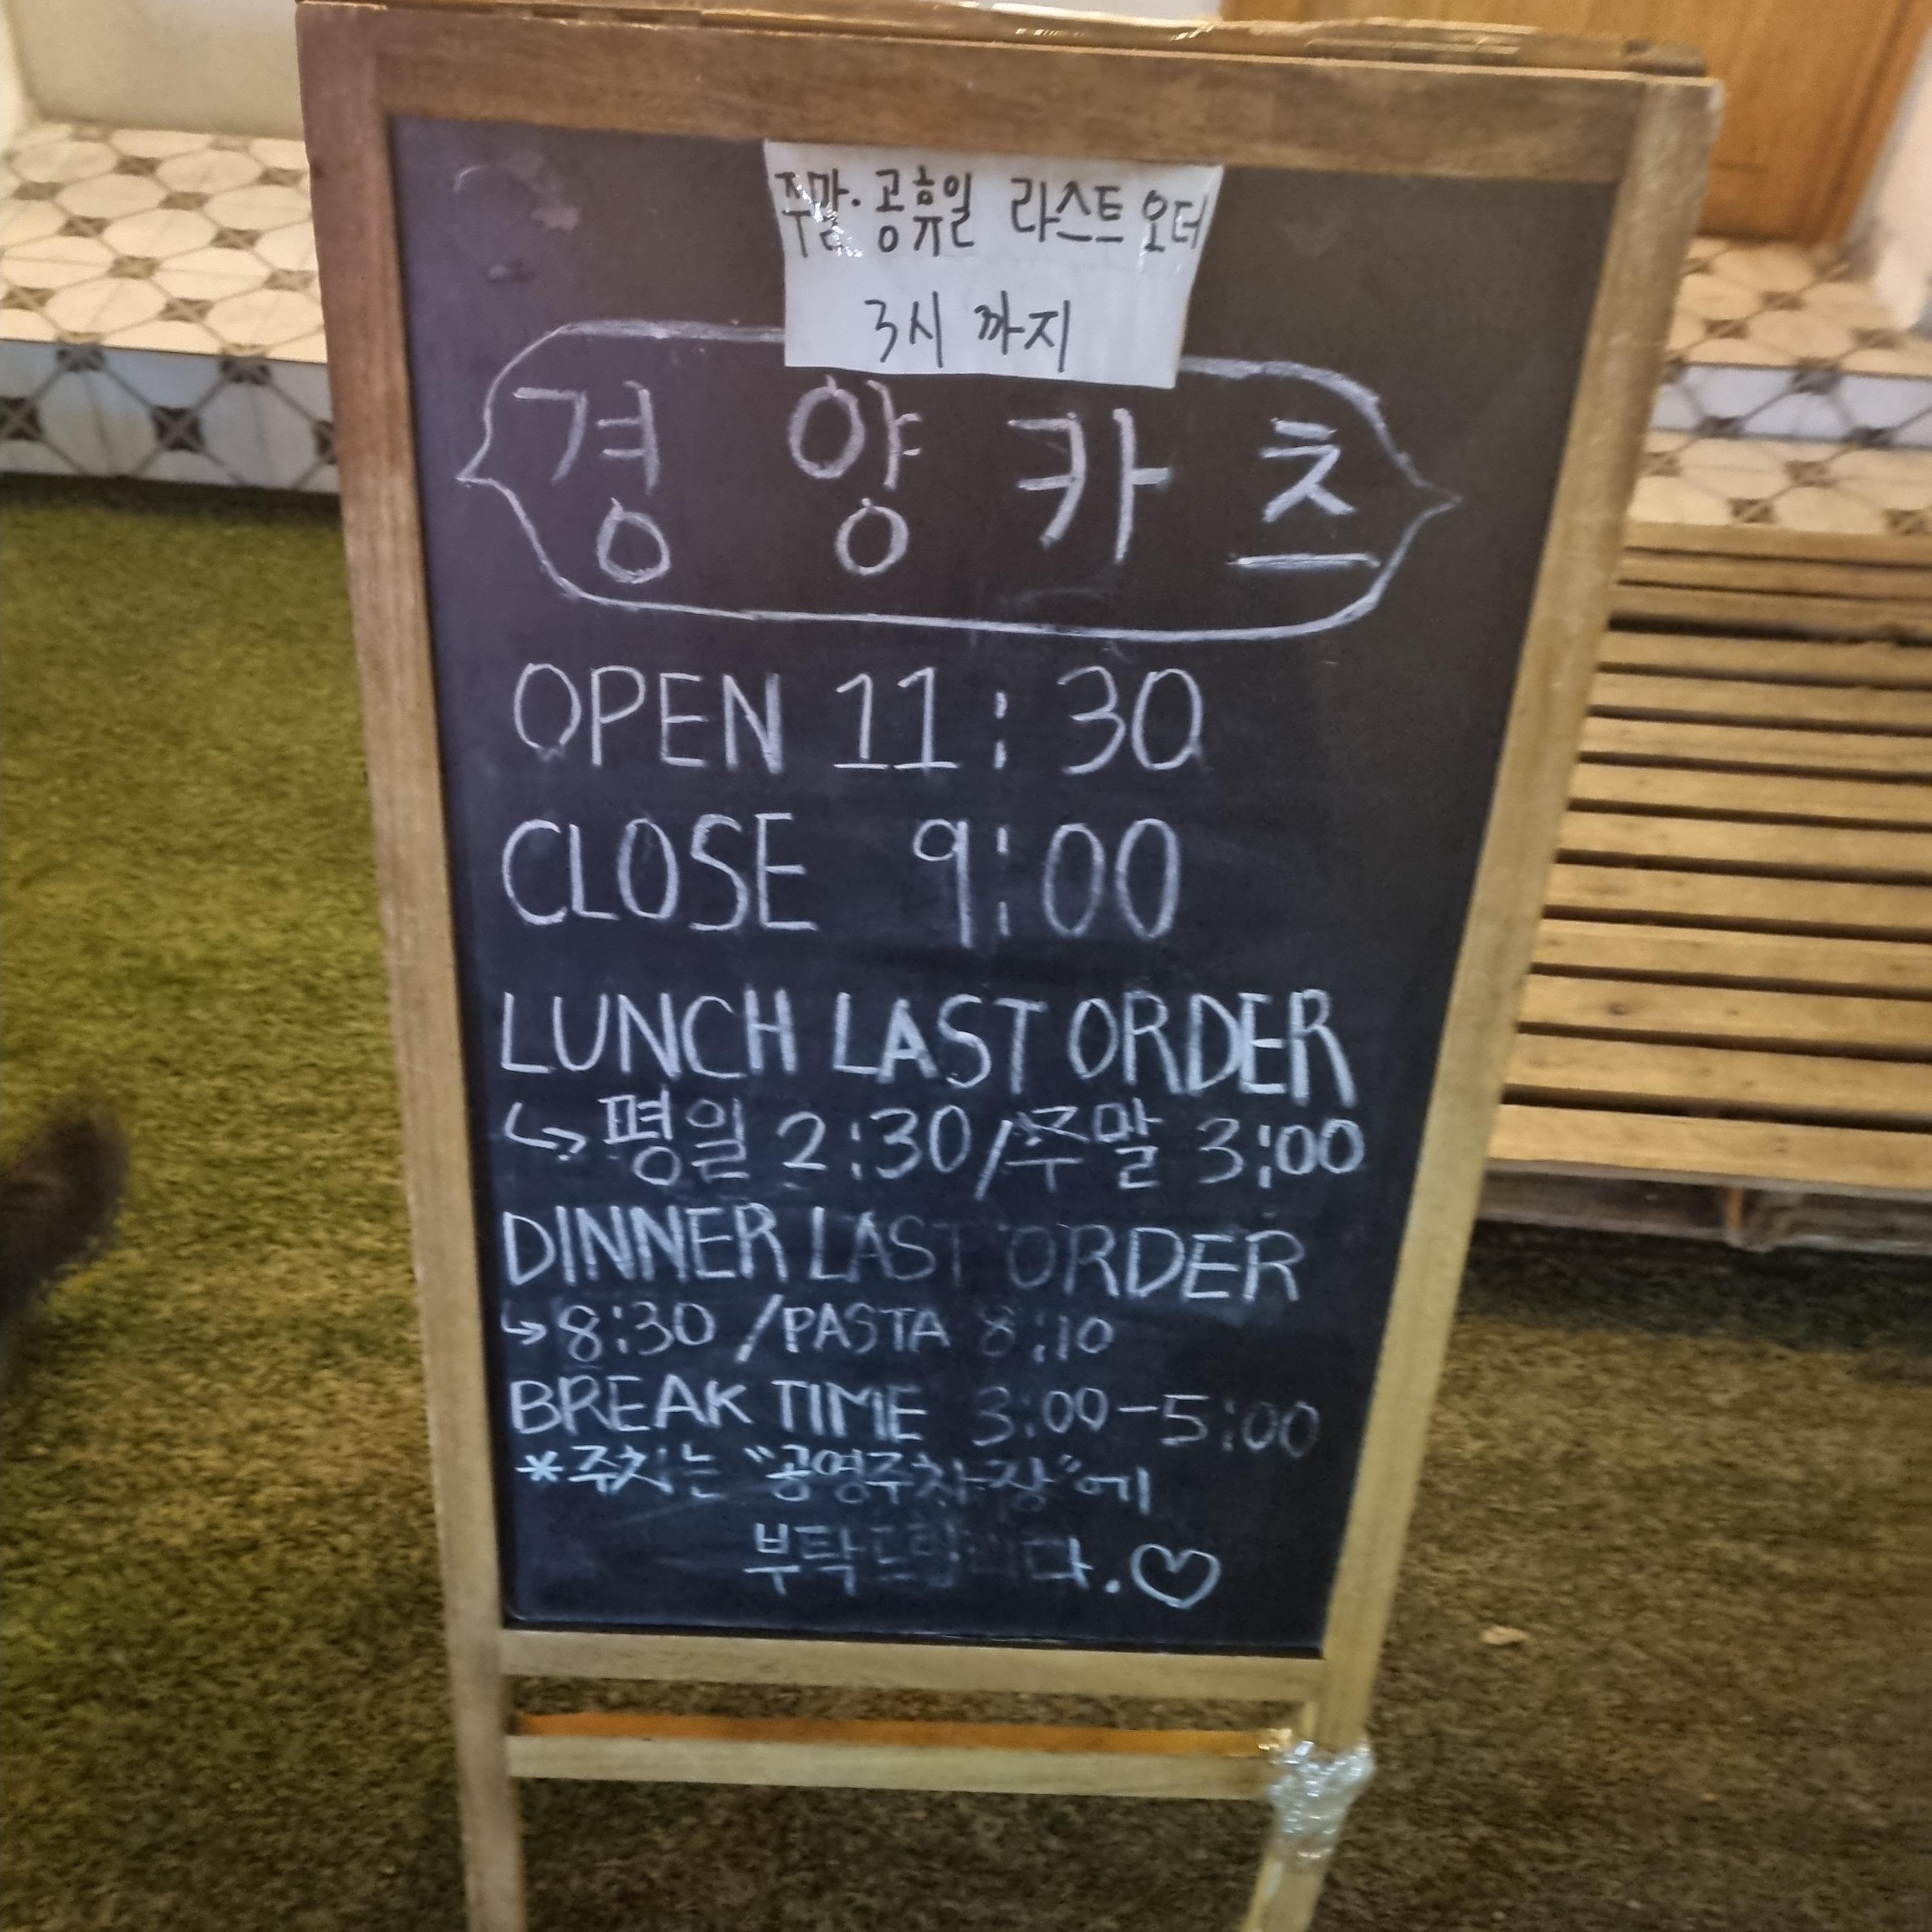 주말·공휴일 라스트오더
3시 까지
경양카츠
OPEN 11:30
CLOSE 9:00
LUNCH LAST ORDER
↳ 평일 2:30/주말 3:00
DINNER LAST ORDER
↳ 8:30 /PASTA 8:10
BREAK TIME 3:00-5:00
*주차는 "공영주차장"에
부탁드립니다.♡